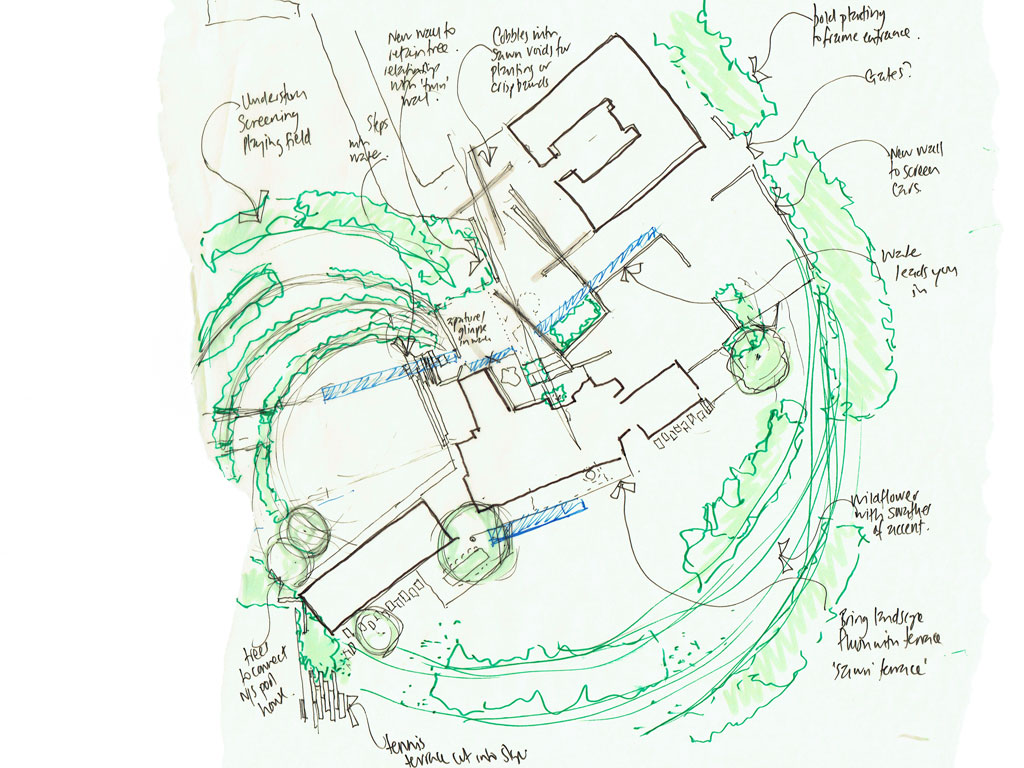 New wall to
retain tree
relationship
with 'twin'
wall.
Cobbles with
sawn voids for
planting or
crisp bands
bold planting
to frame entrance.
Gates?
Understorey
Screening
playing field
Steps
New wall
to screen
cars.
water
leads you
in
aperture/
glimpse
wildflower
with swathes
of accent.
Bring landscape
flush with terrace
'sawn terrace'
trees
to connect
N/S pool
house.
tennis
terrace cut into slope